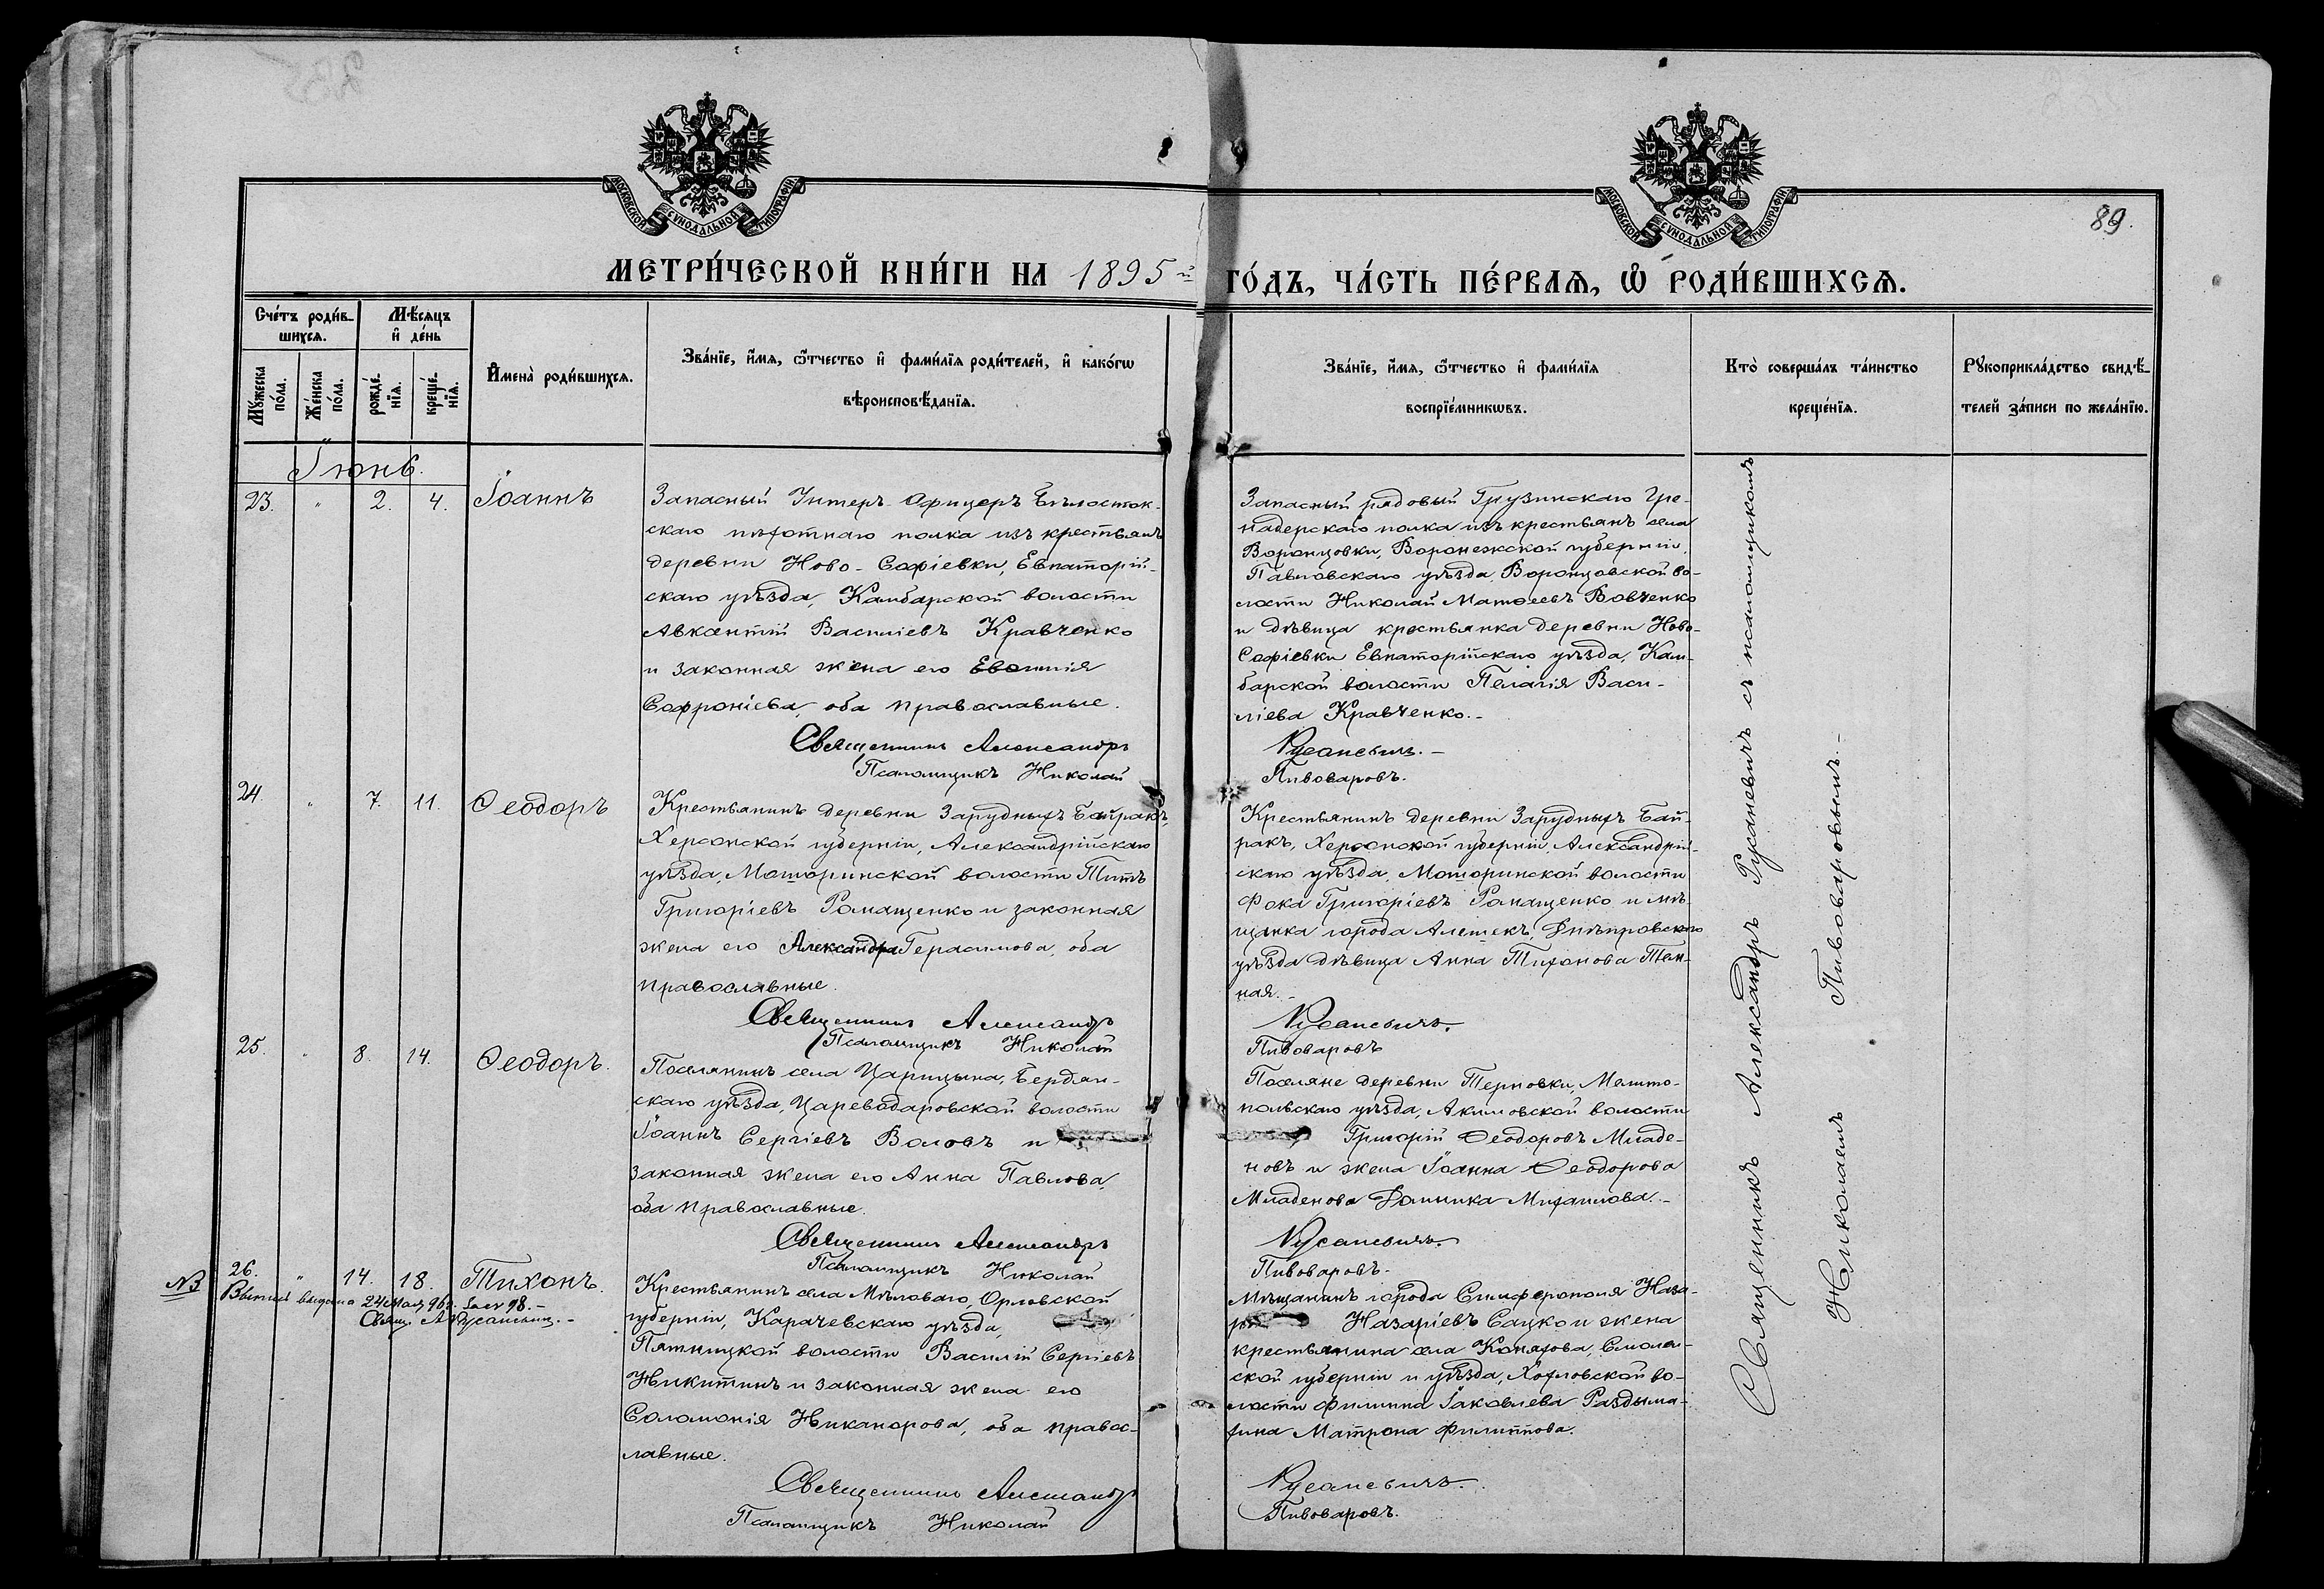 89.
МОСКОВСКОЙ СѴНОДАЛЬНОЙ ТИПОГРАФІИ
МОСКОВСКОЙ СѴНОДАЛЬНОЙ ТИПОГРАФІИ
МЕТРИ́ЧЕСКОЙ КНИ́ГИ НА 1895й ГО́ДЪ, ЧА́СТЬ ПЕ́РВАЯ, Ѡ РОДИ́ВШИХСЯ.
Сче́тъ роди́в-
шихся.
Мѣ́сяцъ
и҆ де́нь
Му́жеска по́ла.
Же́нска по́ла.
рожде́-нїя.
креще́-нїя.
И҆мена̀ роди́вшихся.
Зва́нїе, и҆́мя, ѻ҆́тчество и҆ фами́лїя роди́телей, и҆ како́гѡ
вѣроисповѣ́данїя.
Зва́нїе, и҆́мя, ѻ҆́тчество и҆ фами́лїя
воспрїе́мникѡвъ.
Кто̀ соверша́лъ та́инство
креще́нїя.
Рꙋкоприкла́дство свидѣ́-
телей за́писи по жела́нїю.
Іюнь.
23. " 2. 4. Іоаннъ
Запасный Унтеръ-Офицеръ Бѣлосток-
скаго пѣхотнаго полка изъ крестьянъ
деревни Ново-Софіевки, Евпаторій-
скаго уѣзда, Камбарской волости
Авксентій Василіевъ Кравченко
и законная жена его Евѳимія
Софроніева, оба православные.
Священникъ Александръ
Псаломщикъ Николай
Запасный рядовый Грузинскаго Гре-
надерскаго полка изъ крестьянъ села
Воронцовки, Воронежской губерніи,
Павловскаго уѣзда, Воронцовской во-
лости Николай Матѳеевъ Вовченко
и дѣвица крестьянка деревни Ново-
Софіевки Евпаторійскаго уѣзда, Кам-
барской волости Пелагія Васи-
ліева Кравченко.-
Русаневичъ.-
Пивоваровъ.
24. " 7. 11. Ѳеодоръ
Крестьянинъ деревни Зарудныхъ Байракъ,
Херсонской губерніи, Александрійскаго
уѣзда, Моторинской волости Титъ
Григоріевъ Романченко и законная
жена его Александра Герасимова, оба
православные.
Священникъ Александръ
Псаломщикъ Николай
Крестьянинъ деревни Зарудныхъ Бай-
ракъ, Херсонской губерніи, Александрій-
скаго уѣзда, Моторинской волости
Фока Григоріевъ Романченко и мѣ-
щанка города Алешекъ, Днѣпровскаго
уѣзда дѣвица Анна Тихонова
ная.-
Русаневичъ.
Пивоваровъ
25. " 8. 14. Ѳеодоръ.
Поселянинъ села Царицына, Бердян-
скаго уѣзда, Цареводаровской волости
Іоаннъ Сергіевъ Воловъ и
законная жена его Анна Павлова,
оба православные.
Священникъ Александръ
Псаломщикъ Николай
Поселяне деревни Терновки, Мелито-
польскаго уѣзда, Акимовской волости
Григорій Ѳеодоровъ Младе-
новъ и жена Іоанна Ѳеодорова
Младенова Домника Михаилова.-
Русаневичъ.
Пивоваровъ.
NB 26. " 14. 18. Тихонъ.
Выпись выдана 24 Мая 96г. за № 98.-
Свящ. А. Русаневич.-
Крестьянинъ села Мѣловаго, Орловской
губерніи, Карачевскаго уѣзда,
Пятницкой волости Василій Сергіевъ
Никитинъ и законная жена его
Соломонія Никанорова, оба правос-
лавные.
Священникъ Александръ
Псаломщикъ Николай
Мѣщанинъ города Симферополя Наза-
Назаріевъ Сацко и жена
крестьянина села Коняхова, Смолен-
ской губерніи и уѣзда, Хохловской во-
лости Филиппа Іаковлева Раздыма-
хина Матрона Филиппова.
Русаневичъ.
Пивоваровъ.
Священникъ Александръ Русаневичъ съ псаломщикомъ
Николаемъ Пивоваровымъ.-